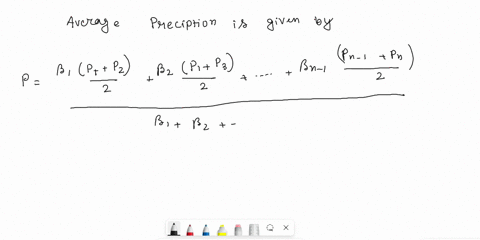 Average Preciption is given by
P = B1 (P1 + P2)/2 + B2 (P1 + P3)/2 + ..... + Bn-1 (Pn-1 + Pn)/2
B1 + B2 + -